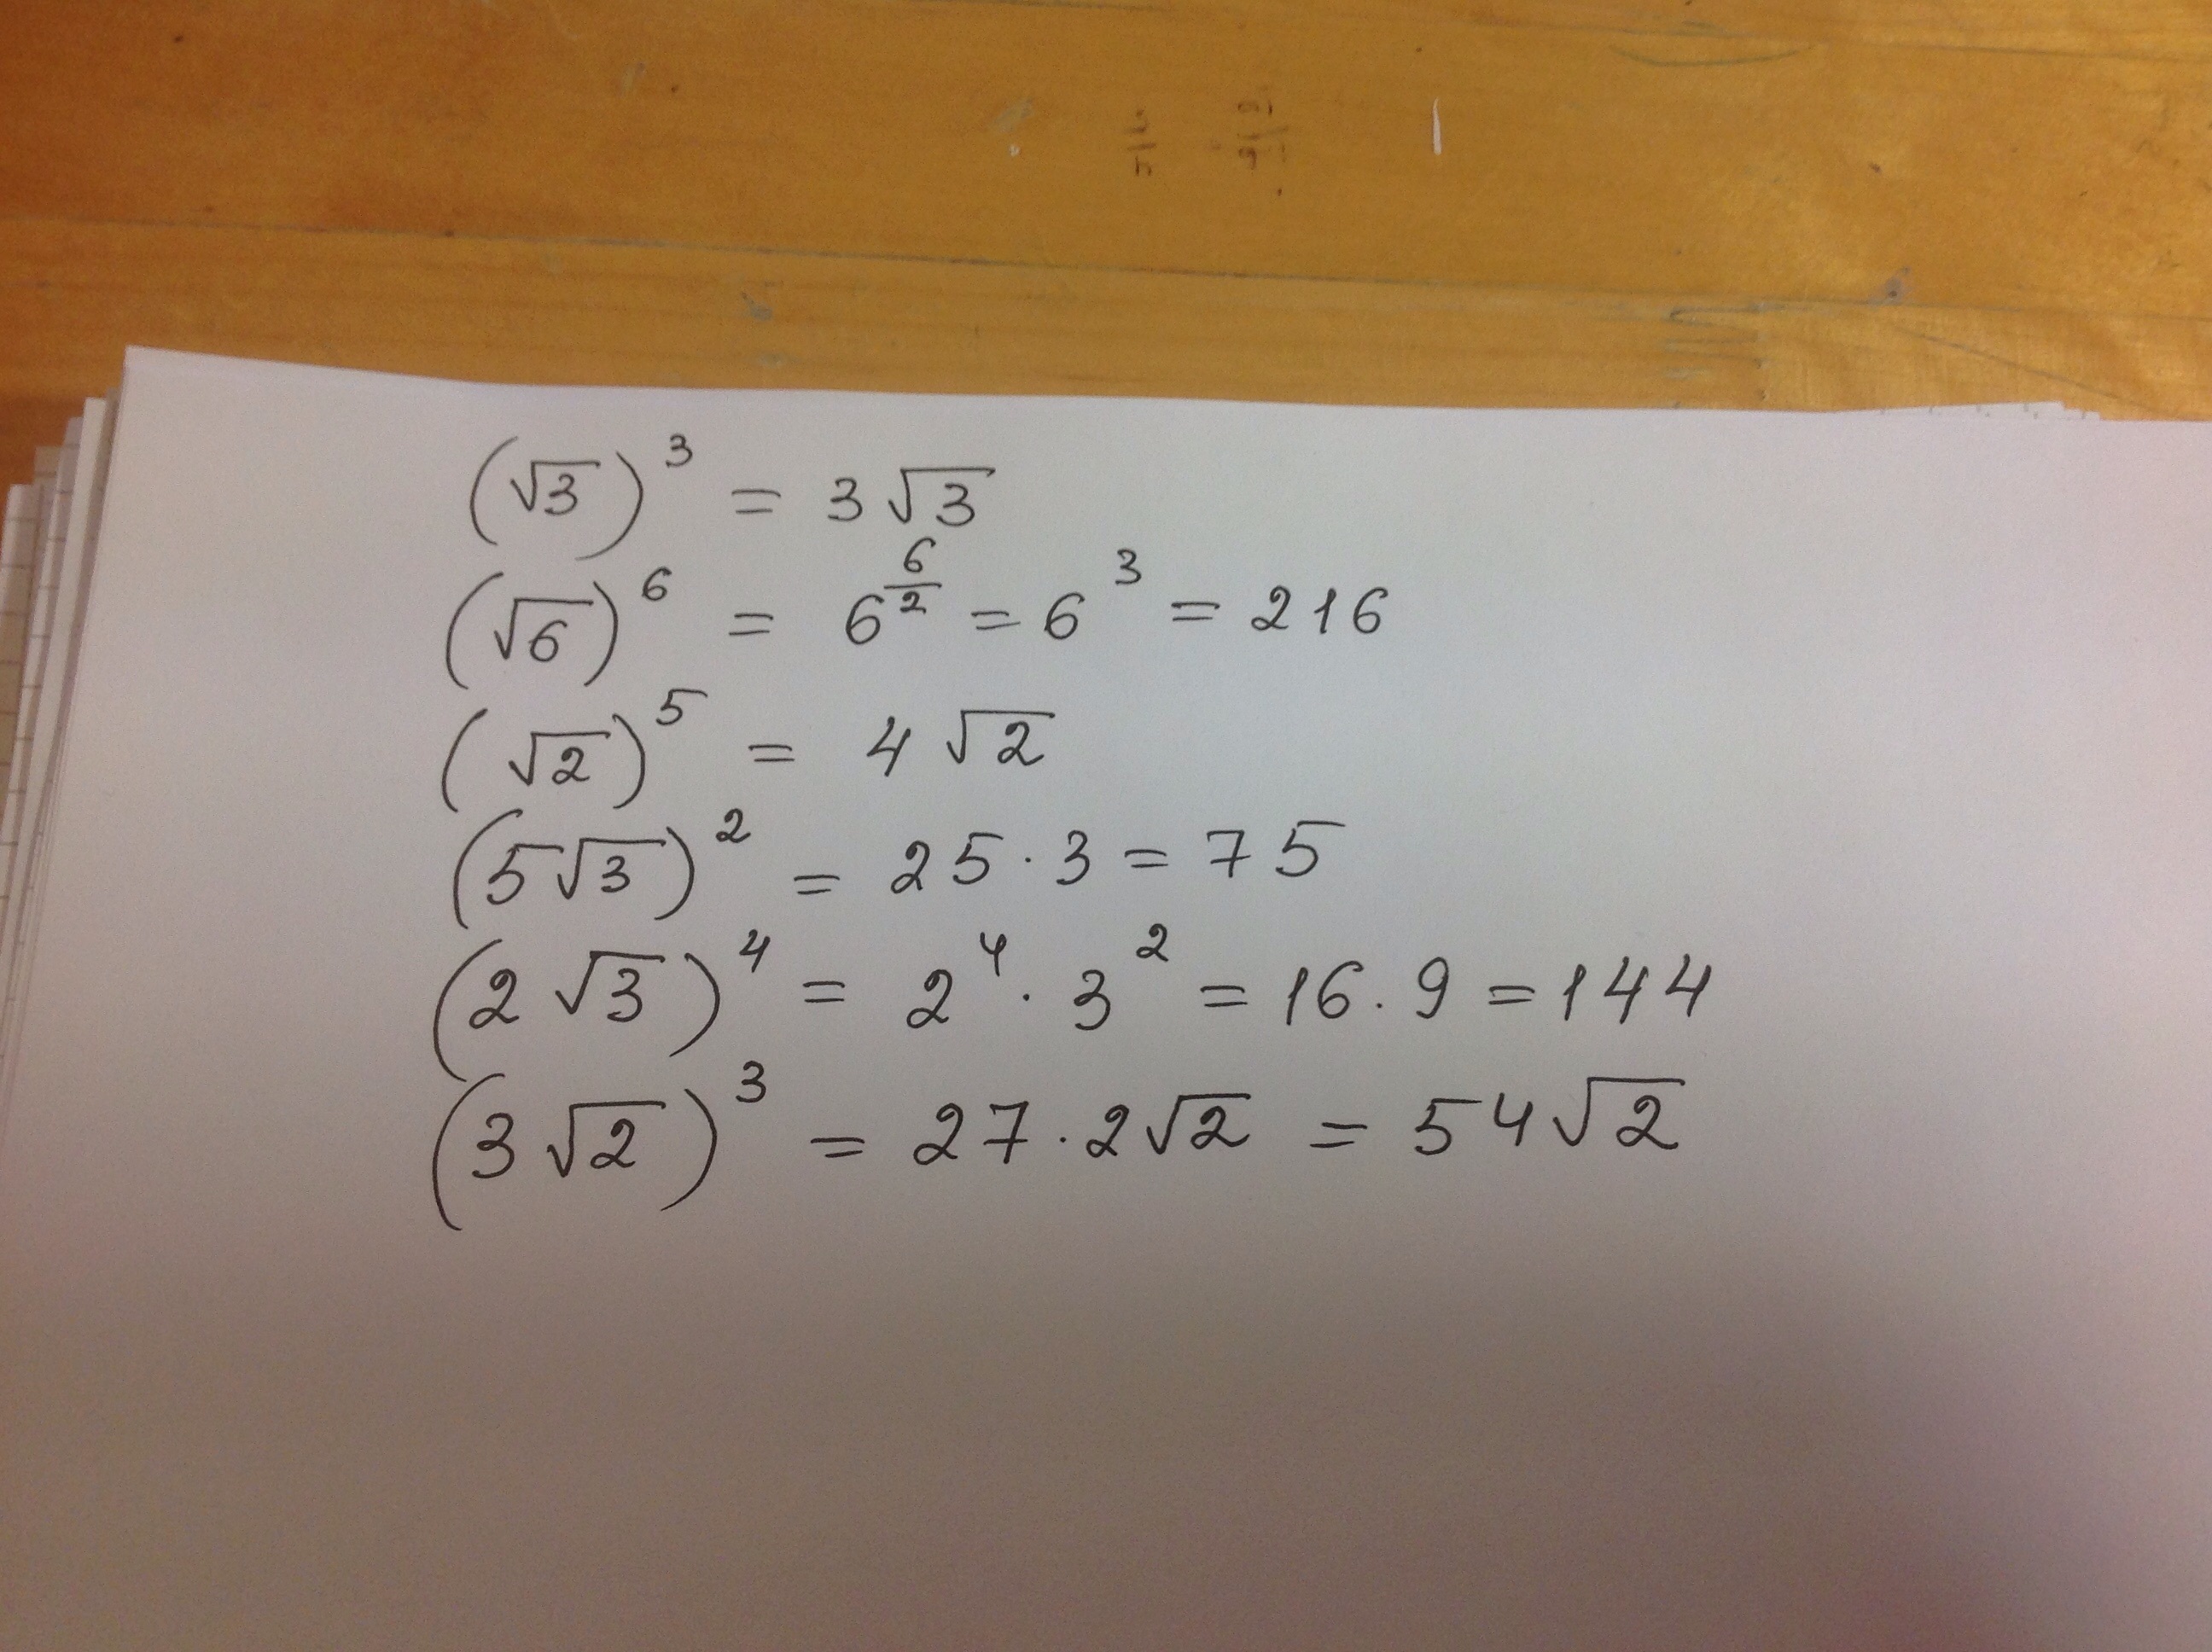 (√3)³ = 3√3
(√6)⁶ = 6^(6/2) = 6³ = 216
(√2)⁵ = 4√2
(5√3)² = 25·3 = 75
(2√3)⁴ = 2⁴·3² = 16·9 = 144
(3√2)³ = 27·2√2 = 54√2